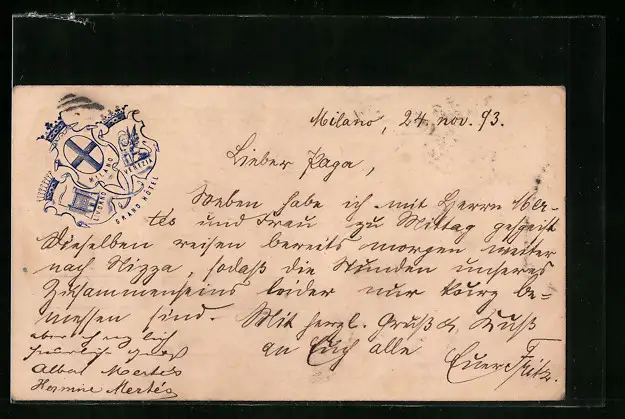 MILANO
VENEZIA
LUGANO
GRAND HÔTEL
Milano, 24. nov. 93.
Lieber Papa,
Neben habe ich mit Herrn Mer-
tés und Frau zu Mittag gespeist
Dieselben reisen bereits morgen weiter
nach Nizza, sodaß die Stunden unseres
Zusammenseins leider nur kurz be-
messen sind. Mit herzl. Gruß & Kuß
an Euch alle Euer Fritz.
Gruß
Albert Mertés
Hermine Mertés